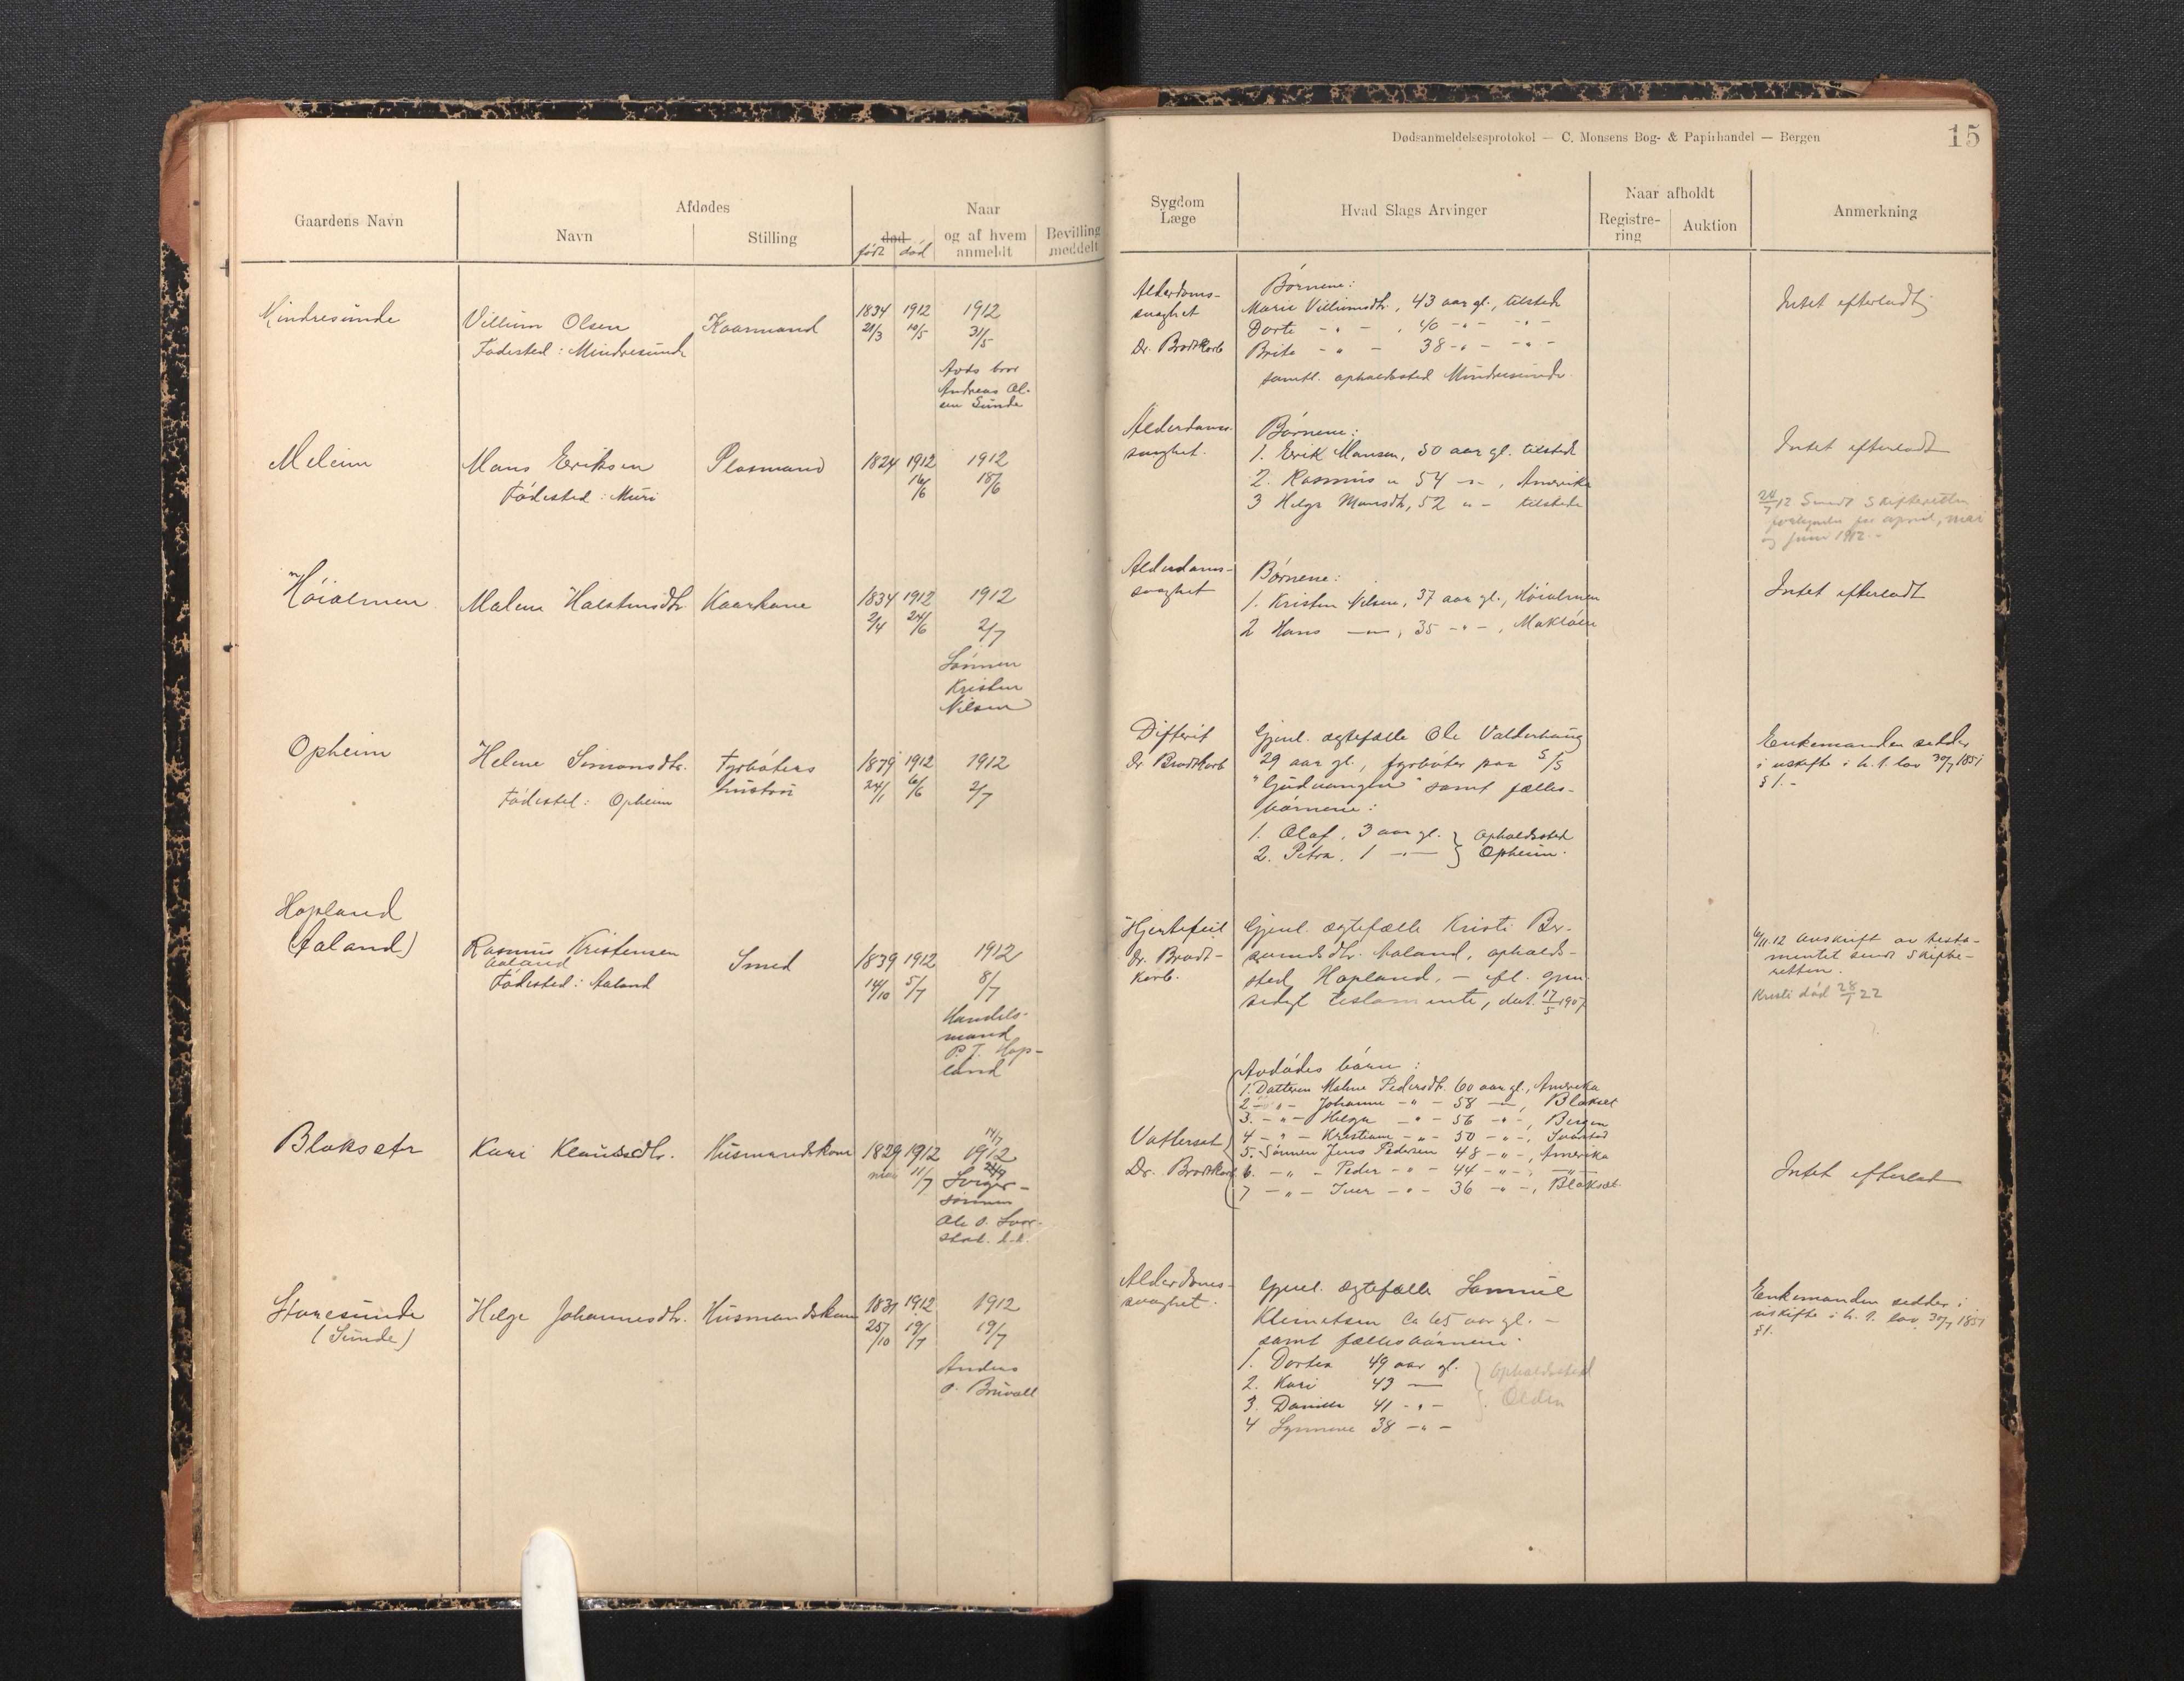 Dødsanmeldelsesprotokol — C. Monsens Bog- & Papirhandel — Bergen
15
Gaardens Navn
Afdødes
Navn
Stilling
død
født død
Naar
og af hvem
anmeldt
Bevilling
meddelt
Sygdom
Læge
Hvad Slags Arvinger
Naar afholdt
Registre-
ring
Auktion
Anmerkning
Mindresunde
Villum Olsen
Fødested: Mindresunde
Kaarmand
1834 1912 1912
21/3 10/5 31/5
Avds bror
Andreas Ol-
sen Sunde
Alderdoms-
svaghet
Dr. Brodtkorb
Børnene:
Marie Villumsdtr., 43 aar gl., tilstede
Dorte - " - , 40 - " - - " -
Brite - " - 38 - " - - " -
samtl. opholdssted Mindresunde
Intet efterladt
Meleim
Mons Eriksen
Fødested: Muri
Plasmand
1824 1912 1912
16/6 18/6
Alderdoms-
svaghet.
Børnene:
1. Erik Monsen, 50 aar gl. tilstede
2. Rasmus " 54 - " - , Amerika
3 Helga Monsdtr, 52 " - tilstede
Intet efterladt
24/7 12 Sendt Skifteretten
for april, mai
og juni 1912. -
Høialmen
Malene Halstensdtr.
Kaarkone
1834 1912 1912
2/4 24/6 2/7
Sønnen
Kristen
Nilsen
Alderdoms-
svaghet
Børnene:
1. Kristen Nilsen, 37 aar gl., Høialmen
2 Hans — " —, 35 - " - , Mukløen
Intet efterladt
Opheim
Helene Simonsdtr.
Fødested: Opheim
Fyrbøters
hustru
1879 1912 1912
24/1 6/6 2/7
Difterit
Dr. Brodtkorb
Gjenl. ægtefælle Ole Valderhaug
29 aar gl., fyrbøter paa S/S
"Gudvangen" samt fælles-
børnene:
1. Olaf, 3 aar gl. } Opholdssted
2. Petra, 1 — " — } Opheim.
Enkemanden sidder
i uskifte i h. t. lov 30/7 1851
§ 1. -
Hopland
(Aaland)
Rasmus Kristensen
Aaland
Fødested: Aaland
Smed
1839 1912 1912
14/10 5/7 8/7
Handels-
mand
P. J. Hop-
land
Hjertefeil
Dr. Brodt-
korb.
Gjenl. ægtefælle Kristi Ras-
mundsdtr. Aaland, opholds-
sted Hopland, - ifl. gjen-
sidigt testamente, dat. 17/5 1907
6/11.12 Avskrift av testa-
mentet sendt Skifte-
retten.
Kristi død 28/1 22
Blaksæter
Kari Klausdtr.
Husmandskone
1829 1912 14/7 1912
mai 11/7
Svoger-
sønnen
Ole O. Svor-
stad.
Vattersot
Dr. Brodtkorb
Avdødes børn:
1. Datteren Malene Pedersdtr. 60 aar gl., Amerika
2 - " - Johanne - " - 58 - " -, Blakset
3. - " - Helga - " - 56 - " -, Bergen
4 - " - Kristiane - " - 50 - " -, Svorstad
5. Sønnen Jens Pedersen 48 - " -, Amerika
6. - " - Peder - " - 44 - " - , - " -
7 - " - Iver - " - 36 - " -, Blakset.
Intet efterlat
Storesunde
(Sunde)
Helge Johannesdtr.
Husmandskone
1831 1912 1912
25/10 19/7 19/7
Anders
O. Bruvoll
Alderdoms-
svaghet.
Gjenl. ægtefælle Samuel
Klemetsen ca 65 aar gl. -
samt fællesbørnene:
1. Dortea 49 aar gl.
2. Kari 43 —
3. Daniel 41 - " -
4 Synnøve 38 - " -
} Opholdssted
Olden
Enkemanden sidder i
uskifte i h. t. lov 30/7 1851
§ 1.